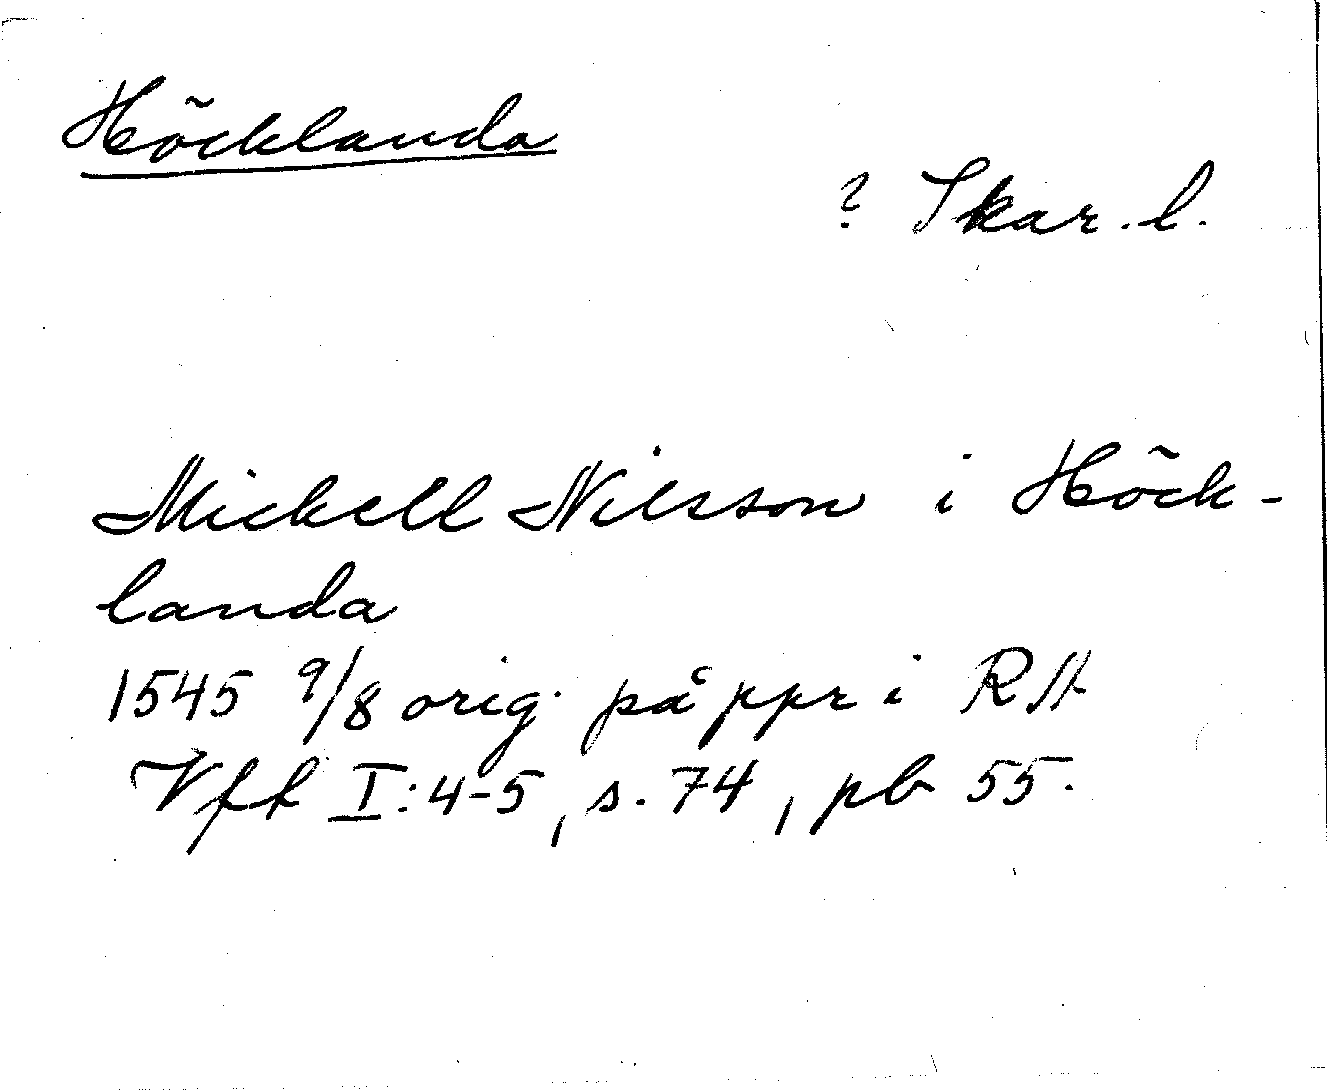 Höcklanda
? Skar. l.
Mickell Nilsson i Höck-
landa
1545 9/8 orig. på ppr i RA
Vff I:4-5, s. 74, pb 55.